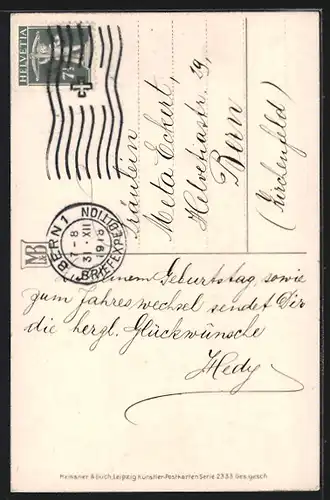 HELVETIA
7½
BERN 1
7-8
31.XII
1918
BRIEFEXPEDITION
MB
Fräulein
Meta Eckert,
Helvetiastr. 19,
Bern
(Kirchenfeld)
Geburtstag, sowie
zum Jahreswechsel sendet Dir
die herzl. Glückwünsche
Hedy
Meissner & Buch, Leipzig Künstler-Postkarten Serie 2333. Ges. gesch.